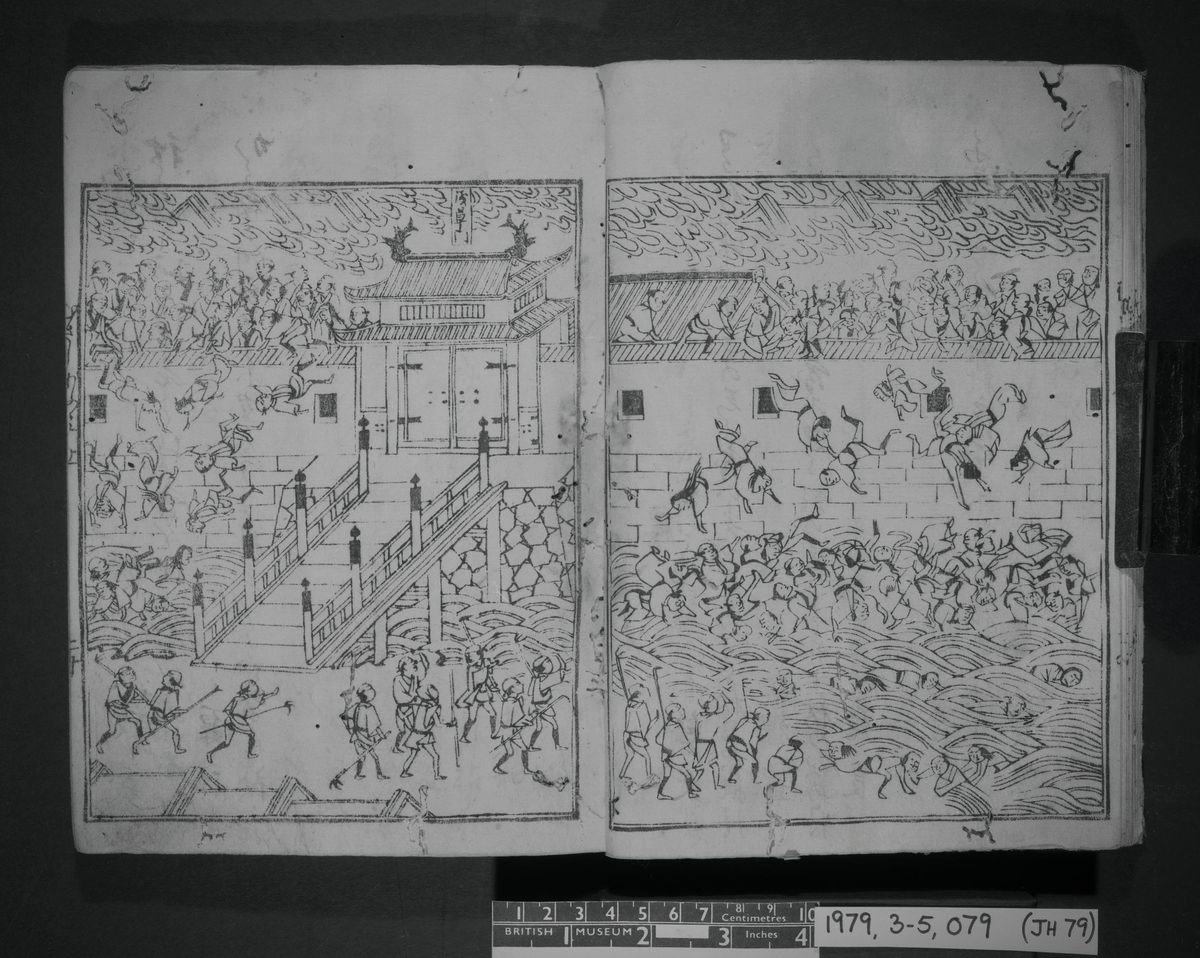 浅草
1 2 3 4 5 6 7 8 9 10
Centimetres
BRITISH 1 MUSEUM 2 3 Inches 4
1979, 3-5, 079 (JH 79)